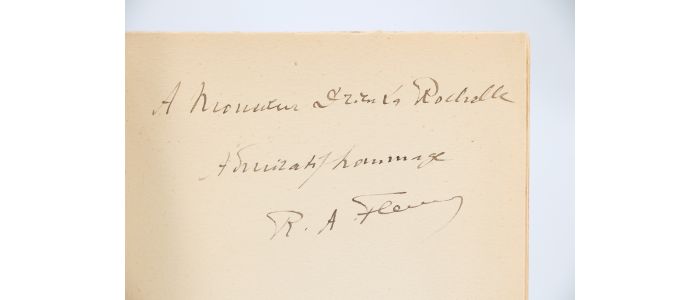 A Monsieur Drieu la Rochelle
Admiratif hommage
R. A Fleury